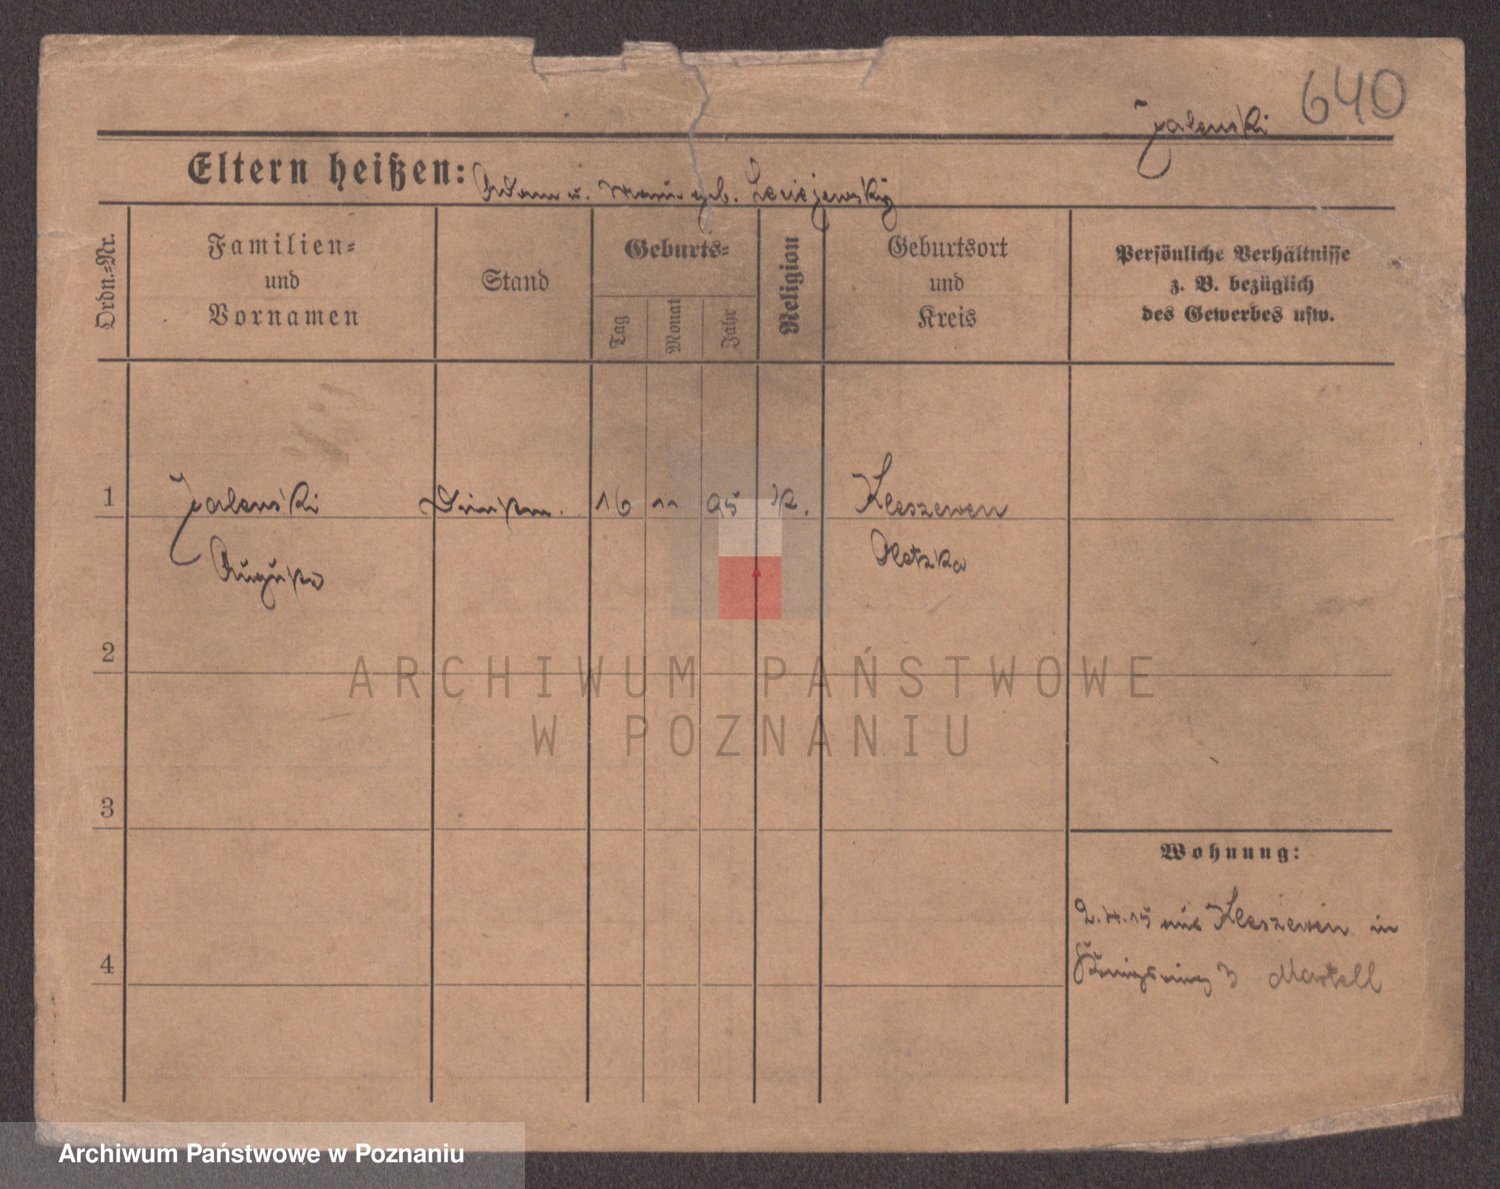 640
Jalenski
Eltern heißen: Adam u. Marie geb. Leciejewski
Ordn.=Nr.
Familien=
und
Vornamen
Stand
Geburts=
Tag
Monat
Jahr
Religion
Geburtsort
und
Kreis
Persönliche Verhältnisse
z. B. bezüglich
des Gewerbes usw.
1 Jalenski 16 11 95 K. Kleszewen
Oletzko
2
3
4
Wohnung:
2.4.15 aus Kleszewen in
Königsring 3 Martell
ARCHIWUM PAŃSTWOWE
W POZNANIU
Archiwum Państwowe w Poznaniu